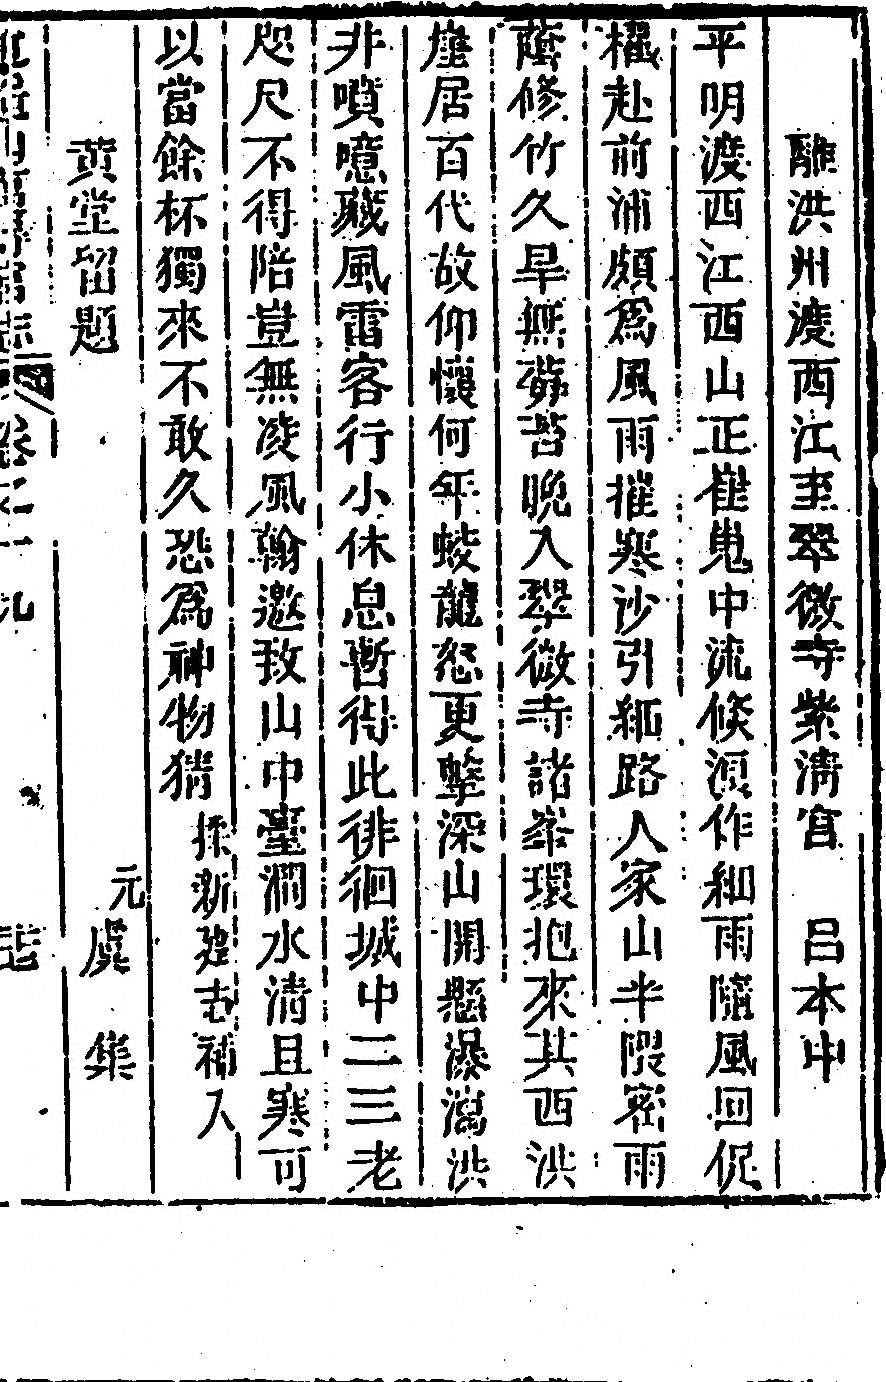 離洪州渡西江至翠微寺紫清宮　呂本中
平明渡西江西山正崔嵬中流倐浪作細雨隨風回促
櫂赴前浦頗爲風雨摧寒沙引細路人家山半隈密雨
蔭修竹久旱無莓苔晚入翠微寺諸峯環抱來其西洪
崖居百代故仰懷何年蛟龍怒更擊深山開懸瀑瀉洪
非噴噫蔵風雷客行小休息暫得此徘徊城中二三老
咫尺不得陪豈無凌風翰邀致山中臺澗水清且寒可
以當餘杯獨來不敢久恐爲神物猜　採新建志補入
黄堂留題　元虞集
卷之十九